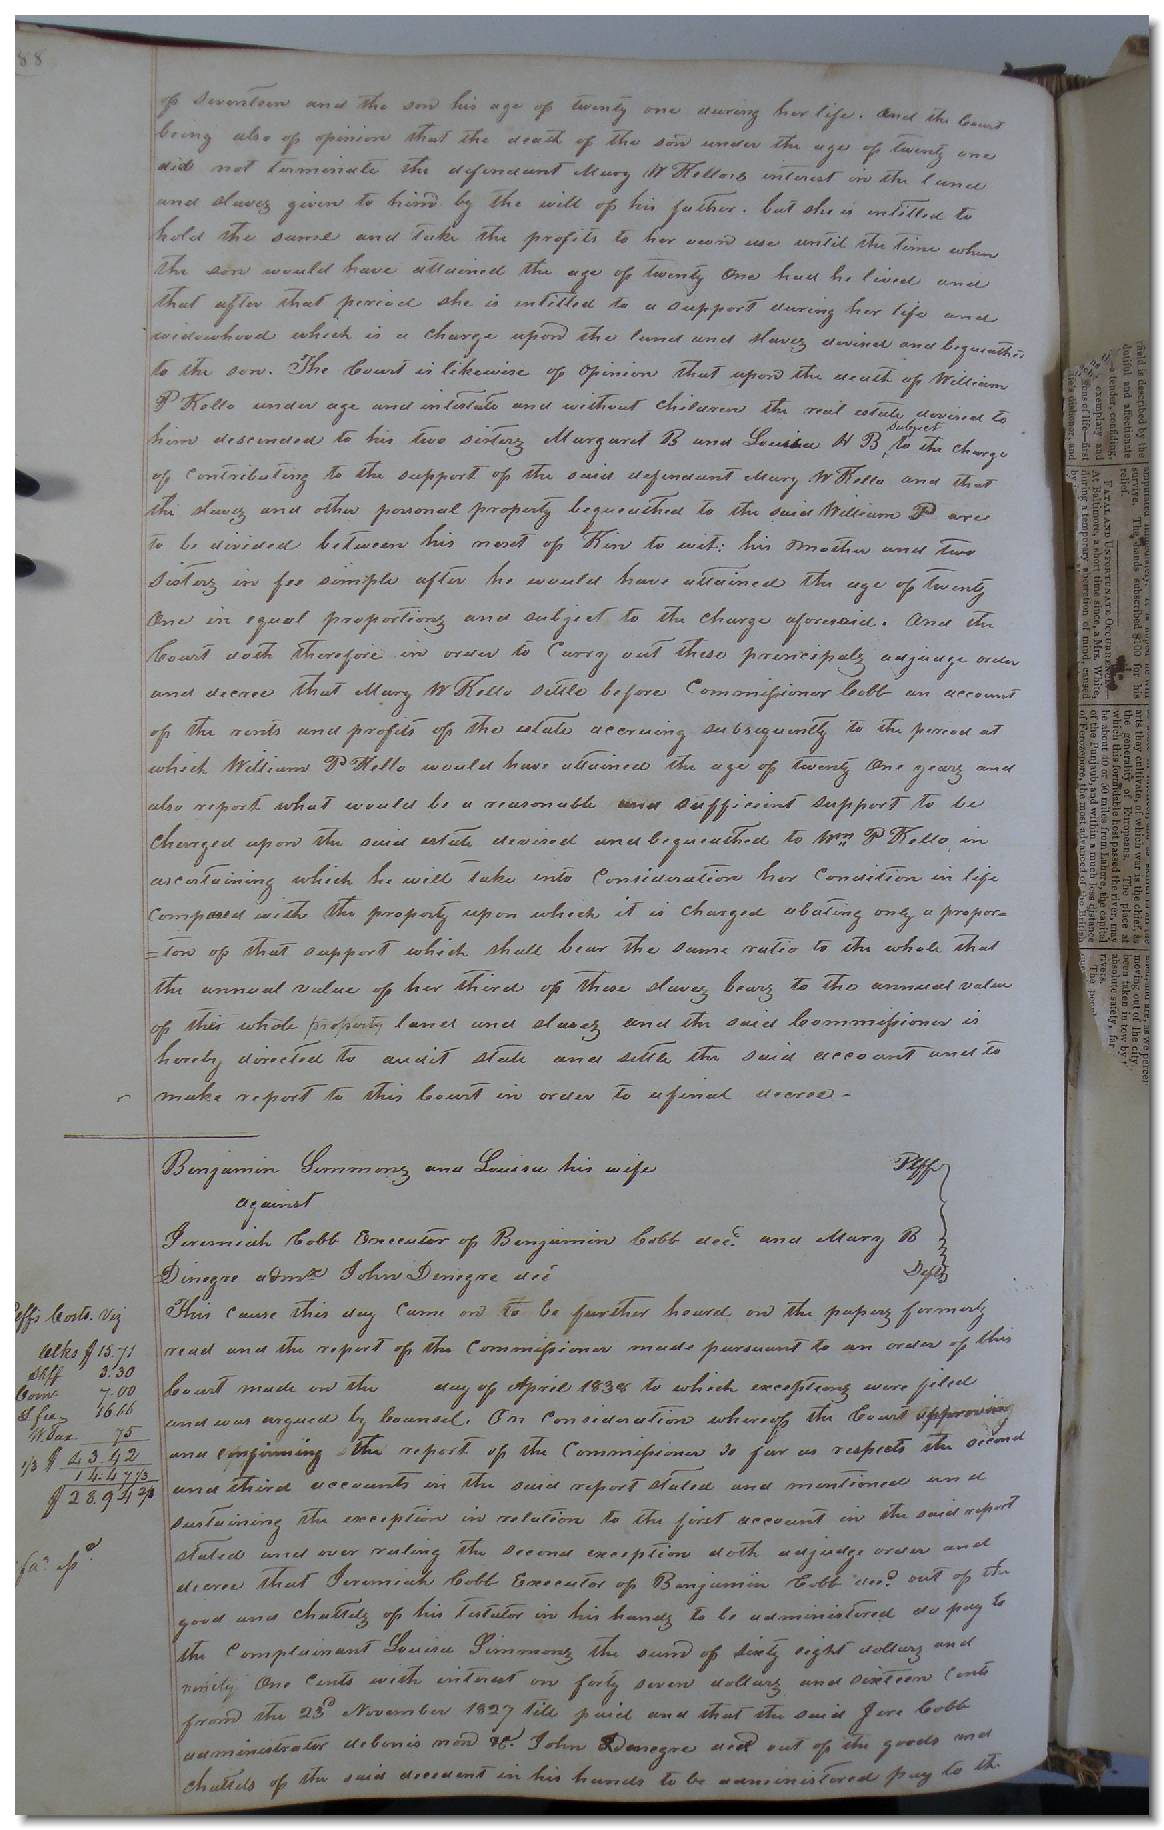 88
of seventeen and the son his age of twenty one during her life. And the Court
being also of opinion that the death of the son under the age of twenty one
did not terminate the defendant Mary W Kello's interest in the land
and slaves given to him by the will of his father. but she is intitled to
hold the same and take the profits to her own use until the time when
the son would have attained the age of twenty One had he lived and
that after that period she is intitled to a support during her life and
widowhood which is a charge upon the land and slaves devised and bequeathed
to the son. The Court is likewise of opinion that upon the death of William
P Kello under age and intestate and without children the real estate devised to
him descended to his two sisters Margaret B and Louisa H B, subject to the charge
of contributing to the support of the said defendant Mary W Kello and that
the slaves and other personal property bequeathed to the said William P are
to be divided between his next of Kin to wit: his Mother and two
sisters in fee simple after he would have attained the age of twenty
One in equal proportions and subject to the charge aforesaid. And the
Court doth therefore in order to Carry out these principals adjudge order
and decree that Mary W Kello settle before Commissioner Cobb an account
of the rents and profits of the estate accruing subsequently to the period at
which William P Kello would have attained the age of twenty One years and
also report what would be a reasonable and sufficient support to be
Charged upon the said estate devised and bequeathed to Wm P Kello in
ascertaining which he will take into Consideration her Condition in life
Compared with the property upon which it is charged abating only a propor=
=tion of that support which shall bear the same ratio to the whole that
the annual value of her third of these slaves bears to the annual value
of this whole property land and slaves and the said Commissioner is
hereby directed to audit state and settle the said account and to
make report to this Court in order to a final decree. -
Benjamin Simmons and Louisa his wife Plffs
against
Jeremiah Cobb Executor of Benjamin Cobb decd. and Mary B
Dinegre admx John Denegre decd Defts
This cause this day Came on to be further heard on the papers formerly
read and the report of the Commissioner made pursuant to an order of this
Court made on the day of April 1838 to which exceptions were filed
and was argued by Counsel. On Consideration whereof the Court approving
and confirming the report of the Commissioner so far as respects the second
and third accounts in the said report stated and mentioned and
sustaining the exception in relation to the first account in the said report
stated and over ruling the second exception doth adjudge order and
decree that Jeremiah Cobb Executor of Benjamin Cobb decd. out of the
good and chattels of his testator in his hands to be administered do pay to
the Complainant Louisa Simmons the sum of sixty eight dollars and
ninety One Cents with interest on forty seven dollars and sixteen Cents
from the 23d November 1827 till paid and that the said Jere Cobb
administrator debonis non &c. John Denegre decd out of the goods and
chattels of the said decedent in his hands to be administered pay to the
Plffs Costs. Viz
Clks $ 15.71
Shff 3.30
Comr 7.00
16.66
75
1/3 $ 43.42
14.47 1/3
$ 28.94 2/3
FATAL AND UNFORTUNATE OCCURRENCE
At Baltimore, a short time since, a Mrs. White,
during a temporary aberration of mind, caused
arts they cultivate, of which war is the chief, is
the generality of Europeans. The place at
which this formidable host passed the river, may
be about 40 or 50 miles from Lahore, the capital
of the Punjaub, and within a much less distance
of Ferozepore, the most advanced of the British
moving out of the city
been taken in tow by
absolute safety, for
rivers.